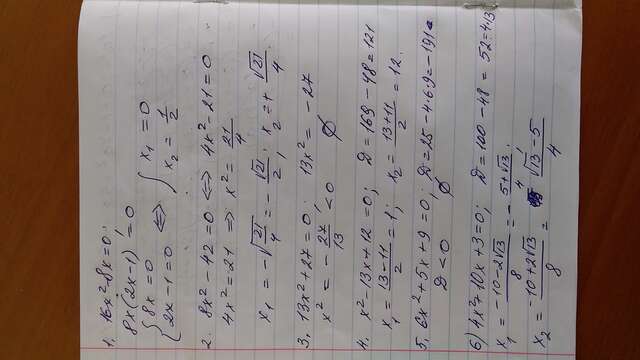 1. 16x²-8x=0;
8x(2x-1)=0
{ 8x=0 ⇔ { x₁=0
2x-1=0 x₂=1/2
2. 8x²-42=0 ⇔ 4x²-21=0
4x²=21 ⇒ x²=21/4
x₁=-√(21/4)=-√21/2; x₂=+√21/4
3. 13x²+27=0; 13x²=-27
x²=-27/13<0 ∅
4. x²-13x+12=0; D=169-48=121
x₁=(13-11)/2=1; x₂=(13+11)/2=12.
5. 6x²+5x+9=0; D=25-4·6·9=-191
D<0 ∅
6) 4x²+10x+3=0; D=100-48=52=4·13
x₁=(-10-2√13)/8=-(5+√13)/4;
x₂=(-10+2√13)/8=(√13-5)/4